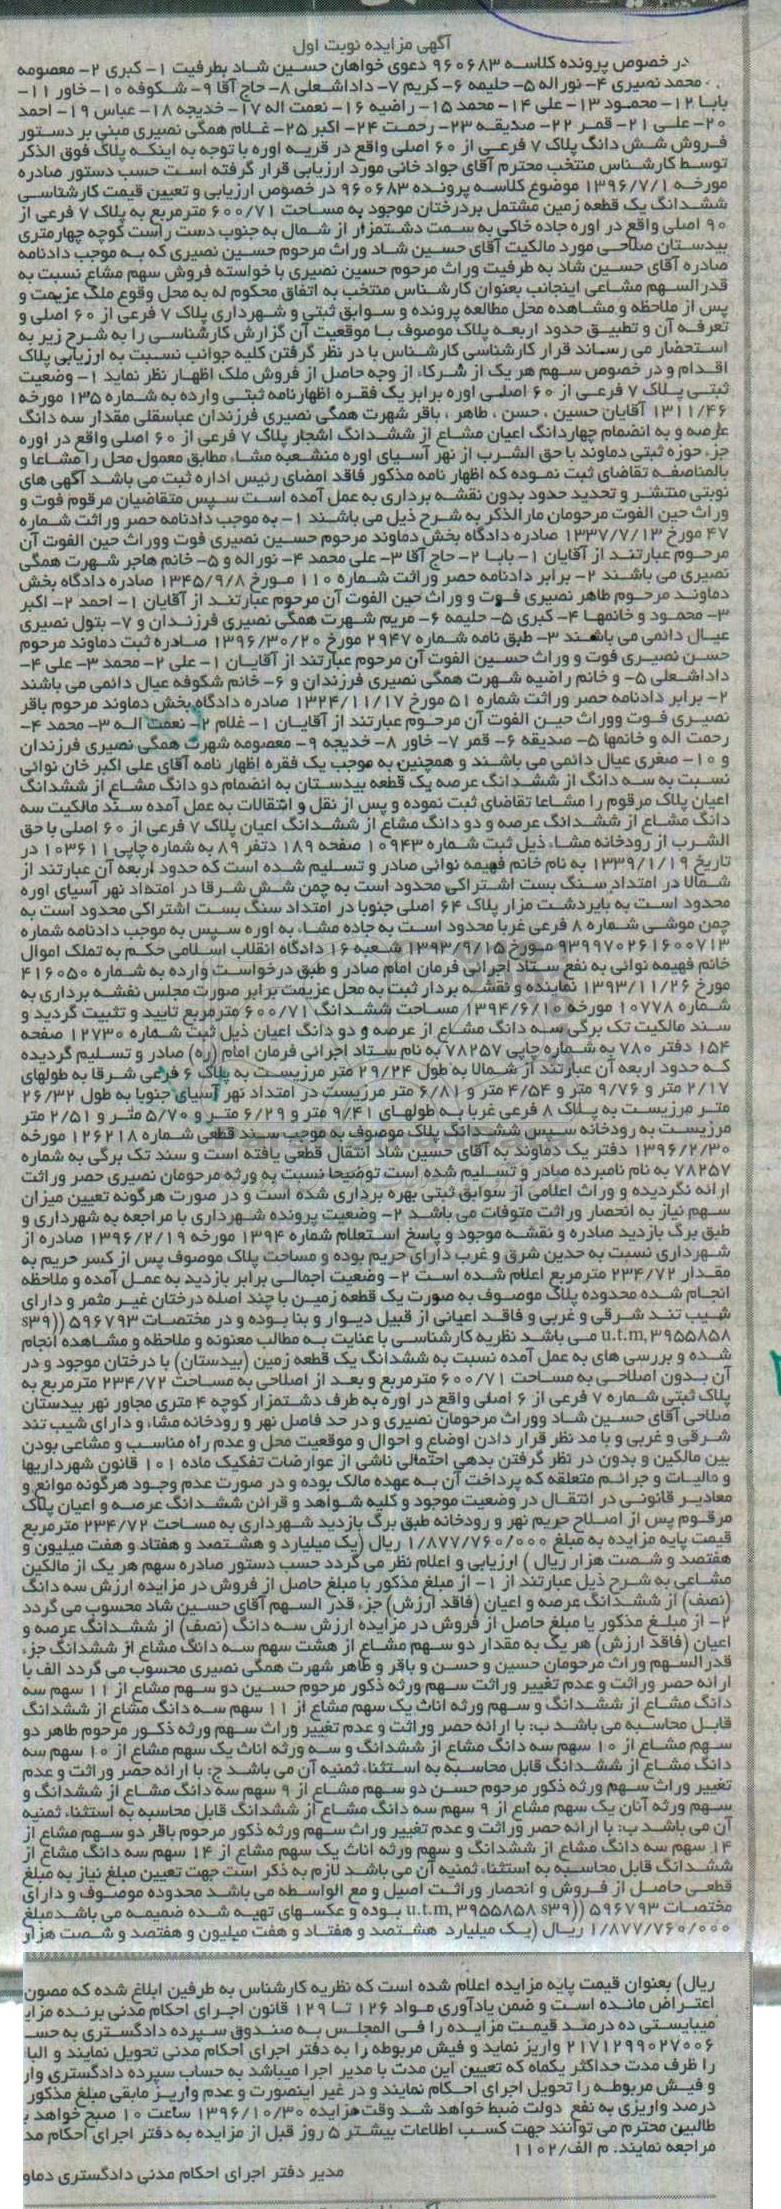 آگهی مزایده نوبت اول
در خصوص پرونده کلاسه ۹۶۰۶۸۳ دعوی خواهان حسین شاد بطرفیت ۱- کبری ۲- معصومه
محمد نصیری ۴- نوراله ۵- حلیمه ۶- کریم ۷- داداشعلی ۸- حاج آقا ۹- شکوفه ۱۰- خاور ۱۱-
بابا ۱۲- محمود ۱۳- علی ۱۴- محمد ۱۵- راضیه ۱۶- نعمت اله ۱۷- خدیجه ۱۸- عباس ۱۹- احمد
۲۰- علی ۲۱- قمر ۲۲- صدیقه ۲۳- رحمت ۲۴- اکبر ۲۵- غلام همگی نصیری مبنی بر دستور
فروش شش دانگ پلاک ۷ فرعی از ۶۰ اصلی واقع در قریه اوره با توجه به اینکه پلاک فوق الذکر
توسط کارشناس منتخب محترم آقای جواد خانی مورد ارزیابی قرار گرفته است حسب دستور صادره
مورخه ۱۳۹۶/۷/۱ موضوع کلاسه پرونده ۹۶۰۶۸۳ در خصوص ارزیابی و تعیین قیمت کارشناسی
ششدانگ یک قطعه زمین مشتمل بردرختان موجود به مساحت ۶۰۰/۷۱ مترمربع به پلاک ۷ فرعی از
۹۰ اصلی واقع در اوره جاده خاکی به سمت دشتمزار از شمال به جنوب دست راست کوچه چهارمتری
بیدستان صلاحی مورد مالکیت آقای حسین شاد وراث مرحوم حسین نصیری که به موجب دادنامه
صادره آقای حسین شاد به طرفیت وراث مرحوم حسین نصیری با خواسته فروش سهم مشاع نسبت به
قدرالسهم مشاعی اینجانب بعنوان کارشناس منتخب به اتفاق محکوم له به محل وقوع ملک عزیمت و
پس از ملاحظه و مشاهده محل مطالعه پرونده و سوابق ثبتی و شهرداری پلاک ۷ فرعی از ۶۰ اصلی و
تعرفه آن و تطبیق حدود اربعه پلاک موصوف با موقعیت آن گزارش کارشناسی را به شرح زیر به
استحضار می رساند قرار کارشناسی کارشناس با در نظر گرفتن کلیه جوانب نسبت به ارزیابی پلاک
اقدام و در خصوص سهم هر یک از شرکاء از وجه حاصل از فروش ملک اظهار نظر نماید ۱- وضعیت
ثبتی پلاک ۷ فرعی از ۶۰ اصلی اوره برابر یک فقره اظهارنامه ثبتی وارده به شماره ۱۳۵ مورخه
۱۳۱۱/۴۶ آقایان حسین ، حسن ، طاهر ، باقر شهرت همگی نصیری فرزندان عباسقلی مقدار سه دانگ
عرصه و به انضمام چهاردانگ اعیان مشاع از ششدانگ اشجار پلاک ۷ فرعی از ۶۰ اصلی واقع در اوره
جزء حوزه ثبتی دماوند با حق الشرب از نهر آسیای اوره منشعبه مشاء مطابق معمول محل را مشاعا و
بالمناصفه تقاضای ثبت نموده که اظهار نامه مذکور فاقد امضای رئیس اداره ثبت می باشد آگهی های
نوبتی منتشر و تحدید حدود بدون نقشه برداری به عمل آمده است سپس متقاضیان مرقوم فوت و
وراث حین الفوت مرحومان مارالذکر به شرح ذیل می باشند ۱- به موجب دادنامه حصر وراثت شماره
۴۷ مورخ ۱۳۳۷/۷/۱۳ صادره دادگاه بخش دماوند مرحوم حسین نصیری فوت ووراث حین الفوت آن
مرحوم عبارتند از آقایان ۱- بابا ۲- حاج آقا ۳- علی محمد ۴- نوراله و ۵- خانم هاجر شهرت همگی
نصیری می باشند ۲- برابر دادنامه حصر وراثت شماره ۱۱۰ مورخ ۱۳۴۵/۹/۸ صادره دادگاه بخش
دماوند مرحوم طاهر نصیری فوت و وراث حین الفوت آن مرحوم عبارتند از آقایان ۱- احمد ۲- اکبر
۳- محمود و خانمها ۴- کبری ۵- حلیمه ۶- مریم شهرت همگی نصیری فرزندان و ۷- بتول نصیری
عیال دائمی می باشند ۳- طبق نامه شماره ۲۹۴۷ مورخ ۱۳۹۶/۳۰/۲۰ صادره ثبت دماوند مرحوم
حسن نصیری فوت و وراث حسین الفوت آن مرحوم عبارتند از آقایان ۱- علی ۲- محمد ۳- علی ۴-
داداشعلی ۵- و خانم راضیه شهرت همگی نصیری فرزندان و ۶- خانم شکوفه عیال دائمی می باشند
۲- برابر دادنامه حصر وراثت شماره ۵۱ مورخ ۱۳۲۴/۱۱/۱۷ صادره دادگاه بخش دماوند مرحوم باقر
نصیری فوت ووراث حین الفوت آن مرحوم عبارتند از آقایان ۱- غلام ۲- نعمت اله ۳- محمد ۴-
رحمت اله و خانمها ۵- صدیقه ۶- قمر ۷- خاور ۸- خدیجه ۹- معصومه شهرت همگی نصیری فرزندان
و ۱۰- صغری عیال دائمی می باشند و همچنین به موجب یک فقره اظهار نامه آقای علی اکبر خان نوائی
نسبت به سه دانگ از ششدانگ عرصه یک قطعه بیدستان به انضمام دو دانگ مشاع از ششدانگ
اعیان پلاک مرقوم را مشاعا تقاضای ثبت نموده و پس از نقل و انتقالات به عمل آمده سند مالکیت سه
دانگ مشاع از ششدانگ عرصه و دو دانگ مشاع از ششدانگ اعیان پلاک ۷ فرعی از ۶۰ اصلی با حق
الشرب از رودخانه مشاء ذیل ثبت شماره ۱۰۹۴۳ صفحه ۱۸۹ دتفر ۸۹ به شماره چاپی ۱۰۳۶۱۱ در
تاریخ ۱۳۳۹/۱/۱۹ به نام خانم فهیمه نوائی صادر و تسلیم شده است که حدود اربعه آن عبارتند از
شمالا در امتداد سنگ بست اشتراکی محدود است به چمن شش شرقا در امتداد نهر آسیای اوره
محدود است به بایردشت مزار پلاک ۶۴ اصلی جنوبا در امتداد سنگ بست اشتراکی محدود است به
چمن موشی شماره ۸ فرعی غربا محدود است به جاده مشاء به اوره سپس به موجب دادنامه شماره
۹۳۹۹۷۰۲۶۱۶۰۰۷۱۳ مورخ ۱۳۹۳/۹/۱۵ شعبه ۱۶ دادگاه انقلاب اسلامی حکم به تملک اموال
خانم فهیمه نوائی به نفع ستاد اجرائی فرمان امام صادر و طبق درخواست وارده به شماره ۴۱۶۰۵۰
مورخ ۱۳۹۳/۱۱/۲۶ نماینده و نقشه بردار ثبت به محل عزیمت برابر صورت مجلس نقشه برداری به
شماره ۱۰۷۷۸ مورخه ۱۳۹۴/۶/۱۰ مساحت ششدانگ ۶۰۰/۷۱ مترمربع تایید و تثبیت گردید و
سند مالکیت تک برگی سه دانگ مشاع از عرصه و دو دانگ اعیان ذیل ثبت شماره ۱۲۷۳۰ صفحه
۱۵۴ دفتر ۷۸۰ به شماره چاپی ۷۸۲۵۷ به نام ستاد اجرائی فرمان امام (ره) صادر و تسلیم گردیده
که حدود اربعه آن عبارتند از شمالا به طول ۲۹/۲۴ متر مرزیست به پلاک ۶ فرعی شرقا به طولهای
۲/۱۷ متر و ۹/۷۶ متر و ۴/۵۴ متر و ۶/۸۱ متر مرزیست در امتداد نهر آسیای جنوبا به طول ۲۶/۳۲
متر مرزیست به پلاک ۸ فرعی غربا به طولهای ۹/۴۱ متر و ۶/۲۹ متر و ۵/۷۰ متر و ۲/۵۱ متر
مرزیست به رودخانه سپس ششدانگ پلاک موصوف به موجب سند قطعی شماره ۱۲۶۲۱۸ مورخه
۱۳۹۶/۲/۳۰ دفتر یک دماوند به آقای حسین شاد انتقال قطعی یافته است و سند تک برگی به شماره
۷۸۲۵۷ به نام نامبرده صادر و تسلیم شده است توضیحا نسبت به ورثه مرحومان نصیری حصر وراثت
ارائه نگردیده و وراث اعلامی از سوابق ثبتی بهره برداری شده است و در صورت هرگونه تعیین میزان
سهم نیاز به انحصار وراثت متوفات می باشد ۲- وضعیت پرونده شهرداری با مراجعه به شهرداری و
طبق برگ بازدید صادره و نقشه موجود و پاسخ استعلام شماره ۱۳۹۴ مورخه ۱۳۹۶/۲/۱۹ صادره از
شهرداری نسبت به حدین شرق و غرب دارای حریم بوده و مساحت پلاک موصوف پس از کسر حریم به
مقدار ۲۳۴/۷۲ مترمربع اعلام شده است ۲- وضعیت اجمالی برابر بازدید به عمل آمده و ملاحظه
انجام شده محدوده پلاک موصوف به صورت یک قطعه زمین با چند اصله درختان غیر مثمر و دارای
شیب تند شرقی و غربی و فاقد اعیانی از قبیل دیوار و بنا بوده و در مختصات ۵۹۶۷۹۳ ((s۳۹
u.t.m,۳۹۵۵۸۵۸ می باشد نظریه کارشناسی با عنایت به مطالب معنونه و ملاحظه و مشاهده انجام
شده و بررسی های به عمل آمده نسبت به ششدانگ یک قطعه زمین (بیدستان) با درختان موجود و در
آن بدون اصلاحی به مساحت ۶۰۰/۷۱ مترمربع و بعد از اصلاحی به مساحت ۲۳۴/۷۲ مترمربع به
پلاک ثبتی شماره ۷ فرعی از ۶ اصلی واقع در اوره به طرف دشتمزار کوچه ۴ متری مجاور نهر بیدستان
صلاحی آقای حسین شاد ووراث مرحومان نصیری و در حد فاصل نهر و رودخانه مشاء و دارای شیب تند
شرقی و غربی و با مد نظر قرار دادن اوضاع و احوال و موقعیت محل و عدم راه مناسب و مشاعی بودن
بین مالکین و بدون در نظر گرفتن بدهی احتمالی ناشی از عوارضات تفکیک ماده ۱۰۱ قانون شهرداریها
و مالیات و جرائم متعلقه که پرداخت آن به عهده مالک بوده و در صورت عدم وجود هرگونه موانع و
معاذیر قانونی در انتقال در وضعیت موجود و کلیه شواهد و قرائن ششدانگ عرصه و اعیان پلاک
مرقوم پس از اصلاح حریم نهر و رودخانه طبق برگ بازدید شهرداری به مساحت ۲۳۴/۷۲ مترمربع
قیمت پایه مزایده به مبلغ ۱/۸۷۷/۷۶۰/۰۰۰ ریال (یک میلیارد و هشتصد و هفتاد و هفت میلیون و
هفتصد و شصت هزار ریال ) ارزیابی و اعلام نظر می گردد حسب دستور صادره سهم هر یک از مالکین
مشاعی به شرح ذیل عبارتند از ۱- از مبلغ مذکور با مبلغ حاصل از فروش در مزایده ارزش سه دانگ
(نصف) از ششدانگ عرصه و اعیان (فاقد ارزش) جزء قدر السهم آقای حسین شاد محسوب می گردد
۲- از مبلغ مذکور یا مبلغ حاصل از فروش در مزایده ارزش سه دانگ (نصف) از ششدانگ عرصه و
اعیان (فاقد ارزش) هر یک به مقدار دو سهم مشاع از هشت سهم سه دانگ مشاع از ششدانگ جزء
قدرالسهم وراث مرحومان حسین و حسن و باقر و طاهر شهرت همگی نصیری محسوب می گردد الف با
ارائه حصر وراثت و عدم تغییر وراثت سهم ورثه ذکور مرحوم حسین دو سهم مشاع از ۱۱ سهم سه
دانگ مشاع از ششدانگ و سهم ورثه اناث یک سهم مشاع از ۱۱ سهم سه دانگ مشاع از ششدانگ
قابل محاسبه می باشد ب: با ارائه حصر وراثت و عدم تغییر وراث سهم ورثه ذکور مرحوم طاهر دو
سهم مشاع از ۱۰ سهم سه دانگ مشاع از ششدانگ و سه ورثه اناث یک سهم مشاع از ۱۰ سهم سه
دانگ مشاع از ششدانگ قابل محاسبه به استثناء ثمنیه آن می باشد ج: با ارائه حصر وراثت و عدم
تغییر وراث سهم ورثه ذکور مرحوم حسن دو سهم مشاع از ۹ سهم سه دانگ مشاع از ششدانگ و
سهم ورثه آنان یک سهم مشاع از ۹ سهم سه دانگ مشاع از ششدانگ قابل محاسبه به استثناء ثمنیه
آن می باشد ب: با ارائه حصر وراثت و عدم تغییر وراث سهم ورثه ذکور مرحوم باقر دو سهم مشاع از
۱۴ سهم سه دانگ مشاع از ششدانگ و سهم ورثه اناث یک سهم مشاع از ۱۴ سهم سه دانگ مشاع از
ششدانگ قابل محاسبه به استثناء ثمنیه آن می باشد لازم به ذکر است جهت تعیین مبلغ نیاز به مبلغ
قطعی حاصل از فروش و انحصار وراثت اصیل و مع الواسطه می باشد محدوده موصوف و دارای
مختصات ۵۹۶۷۹۳ ((s۳۹ u.t.m,۳۹۵۵۸۵۸ بوده و عکسهای تهیه شده ضمیمه می باشد مبلغ
۱/۸۷۷/۷۶۰/۰۰۰ ریال (یک میلیارد هشتصد و هفتاد و هفت میلیون و هفتصد و شصت هزار
ریال) بعنوان قیمت پایه مزایده اعلام شده است که نظریه کارشناس به طرفین ابلاغ شده که مصون
اعتراض مانده است و ضمن یادآوری مواد ۱۲۶ تا ۱۲۹ قانون اجرای احکام مدنی برنده مزای
میبایستی ده درصد قیمت مزایده را فی المجلس به صندوق سپرده دادگستری به حس
۲۱۷۱۲۹۹۰۲۷۰۰۶ واریز نماید و فیش مربوطه را به دفتر اجرای احکام مدنی تحویل نمایند و البا
را ظرف مدت حداکثر یکماه که تعیین این مدت با مدیر اجرا میباشد به حساب سپرده دادگستری وار
و فیش مربوطه را تحویل اجرای احکام نمایند و در غیر اینصورت و عدم واریز مابقی مبلغ مذکور
درصد واریزی به نفع دولت ضبط خواهد شد وقت مزایده ۱۳۹۶/۱۰/۳۰ ساعت ۱۰ صبح خواهد ب
طالبین محترم می توانند جهت کسب اطلاعات بیشتر ۵ روز قبل از مزایده به دفتر اجرای احکام مد
مراجعه نمایند. م الف/۱۱۰۲
مدیر دفتر اجرای احکام مدنی دادگستری دماو